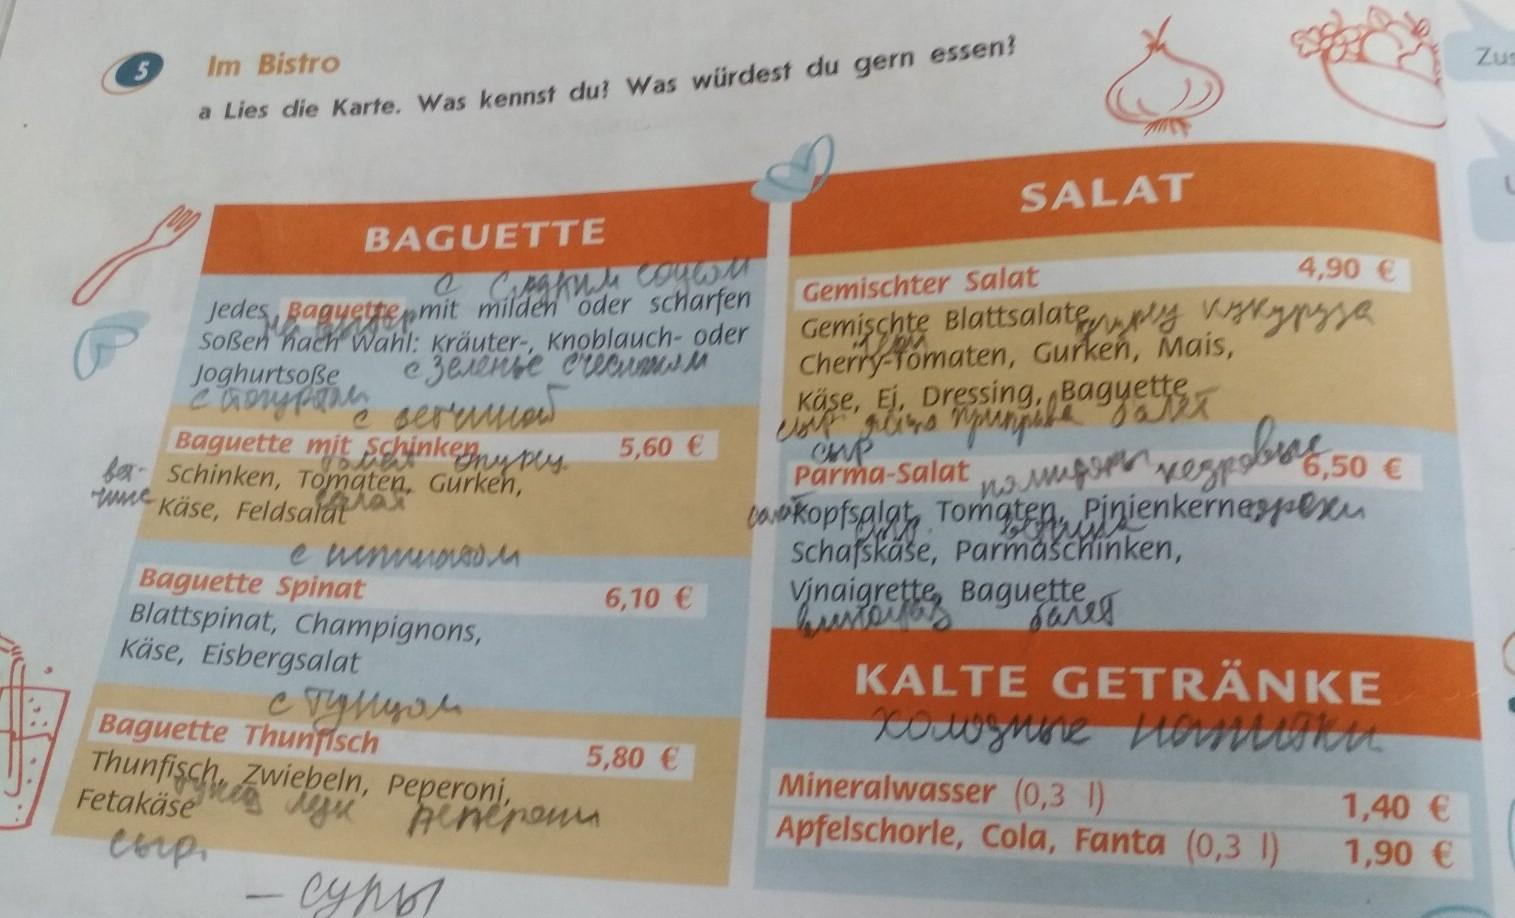 5 Im Bistro
a Lies die Karte. Was kennst du? Was würdest du gern essen?
Zus
BAGUETTE
с соусом
Jedes Baguette mit milden oder scharfen
Soßen nach Wahl: Kräuter-, Knoblauch- oder
Joghurtsoße
с
с ветчиной
Baguette mit Schinken 5,60 €
Schinken, Tomaten, Gurken,
Käse, Feldsalat
салат
с шпинатом
Baguette Spinat 6,10 €
Blattspinat, Champignons,
Käse, Eisbergsalat
с тунцом
Baguette Thunfisch 5,80 €
Thunfisch, Zwiebeln, Peperoni,
тунец лук пеперони
Fetakäse
сыр.
– супы
SALAT
Gemischter Salat 4,90 €
Gemischte Blattsalate,
кукуруза
Cherry-Tomaten, Gurken, Mais,
Käse, Ei, Dressing, Baguette
сыр приправа багет
сыр
Parma-Salat 6,50 €
кедровые
Kopfsalat, Tomaten, Pinienkerne,
орехи
Schafskäse, Parmaschinken,
Vinaigrette, Baguette
багет
KALTE GETRÄNKE
холодные напитки
Mineralwasser (0,3 l) 1,40 €
Apfelschorle, Cola, Fanta (0,3 l) 1,90 €